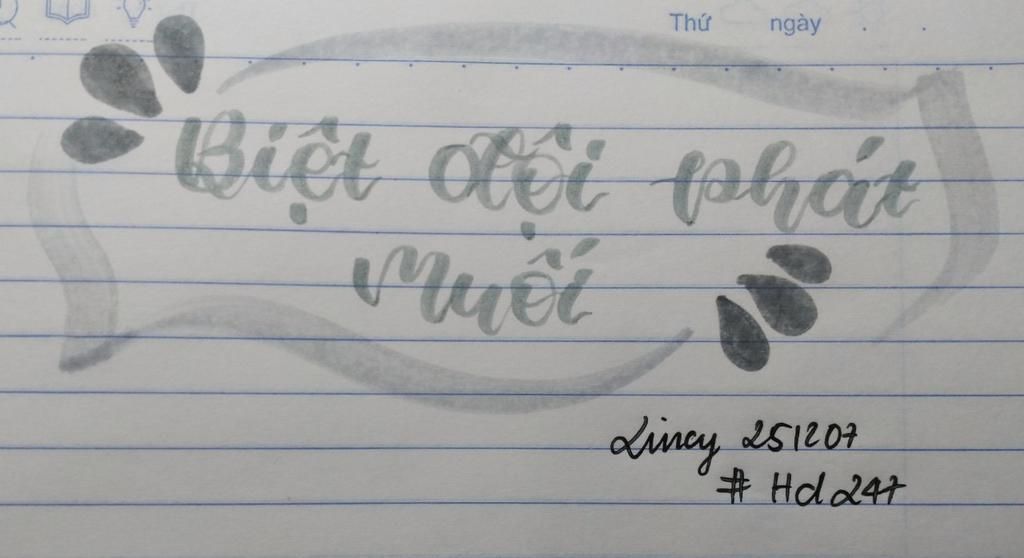 Thứ ngày . .
Biệt đội phát
muối
Lincy 251207
# Hd247